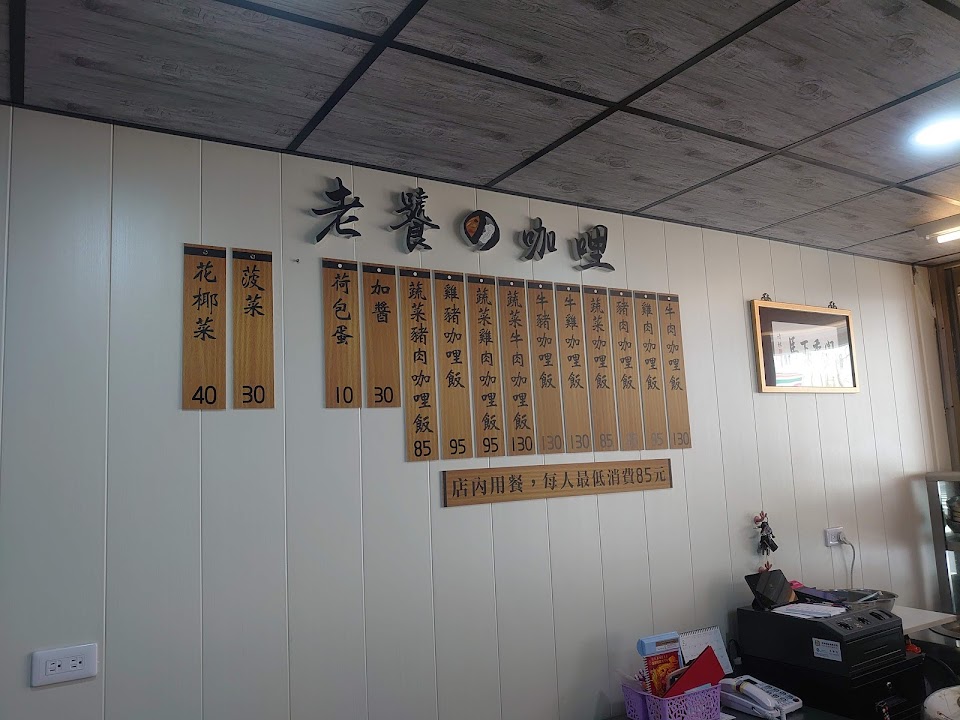 老饕の咖哩
花椰菜 40
菠菜 30
荷包蛋 10
加醬 30
蔬菜豬肉咖哩飯 85
雞豬咖哩飯 95
蔬菜雞肉咖哩飯 95
蔬菜牛肉咖哩飯 130
牛豬咖哩飯 130
牛雞咖哩飯 130
蔬菜咖哩飯 85
豬肉咖哩飯
雞肉咖哩飯 95
牛肉咖哩飯 130
店內用餐，每人最低消費85元